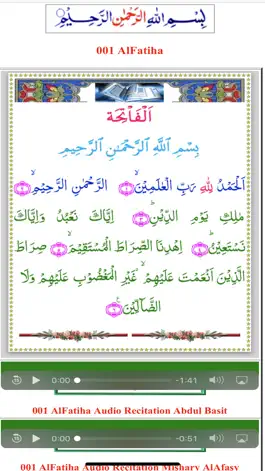 بِسْمِ اللهِ الرَّحْمٰنِ الرَّحِيْمِ
001 AlFatiha
اَلْفَاتِحَة
بِسْمِ ٱللَّهِ ٱلرَّحْمَـٰنِ ٱلرَّحِيمِ
اَلْحَمْدُ لِلّٰهِ رَبِّ الْعٰلَمِيْنَ ۙ﴿١﴾ الرَّحْمٰنِ الرَّحِيْمِ ۙ﴿٢﴾
مٰلِكِ يَوْمِ الدِّيْنِ ؕ﴿٣﴾ اِيَّاكَ نَعْبُدُ وَاِيَّاكَ
نَسْتَعِيْنُ ؕ﴿٤﴾ اِهْدِنَا الصِّرَاطَ الْمُسْتَقِيْمَ ۙ﴿٥﴾ صِرَاطَ
الَّذِيْنَ اَنْعَمْتَ عَلَيْهِمْ ۙ۬ غَيْرِ الْمَغْضُوْبِ عَلَيْهِمْ وَلَا
الضَّآلِّيْنَ ﴿٦﴾
0:00 -1:41
001 AlFatiha Audio Recitation Abdul Basit
0:00 -0:51
001 AlFatiha Audio Recitation Mishary AlAfasy